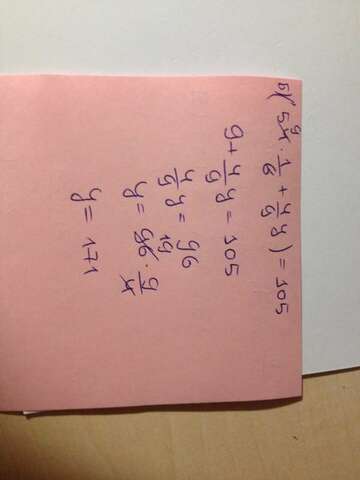 б) (54⁹ · 1/6 + 4/9 y) = 105
9 + 4/9 y = 105
4/9 y = 96
19
y = 96 · 9/4
y = 171